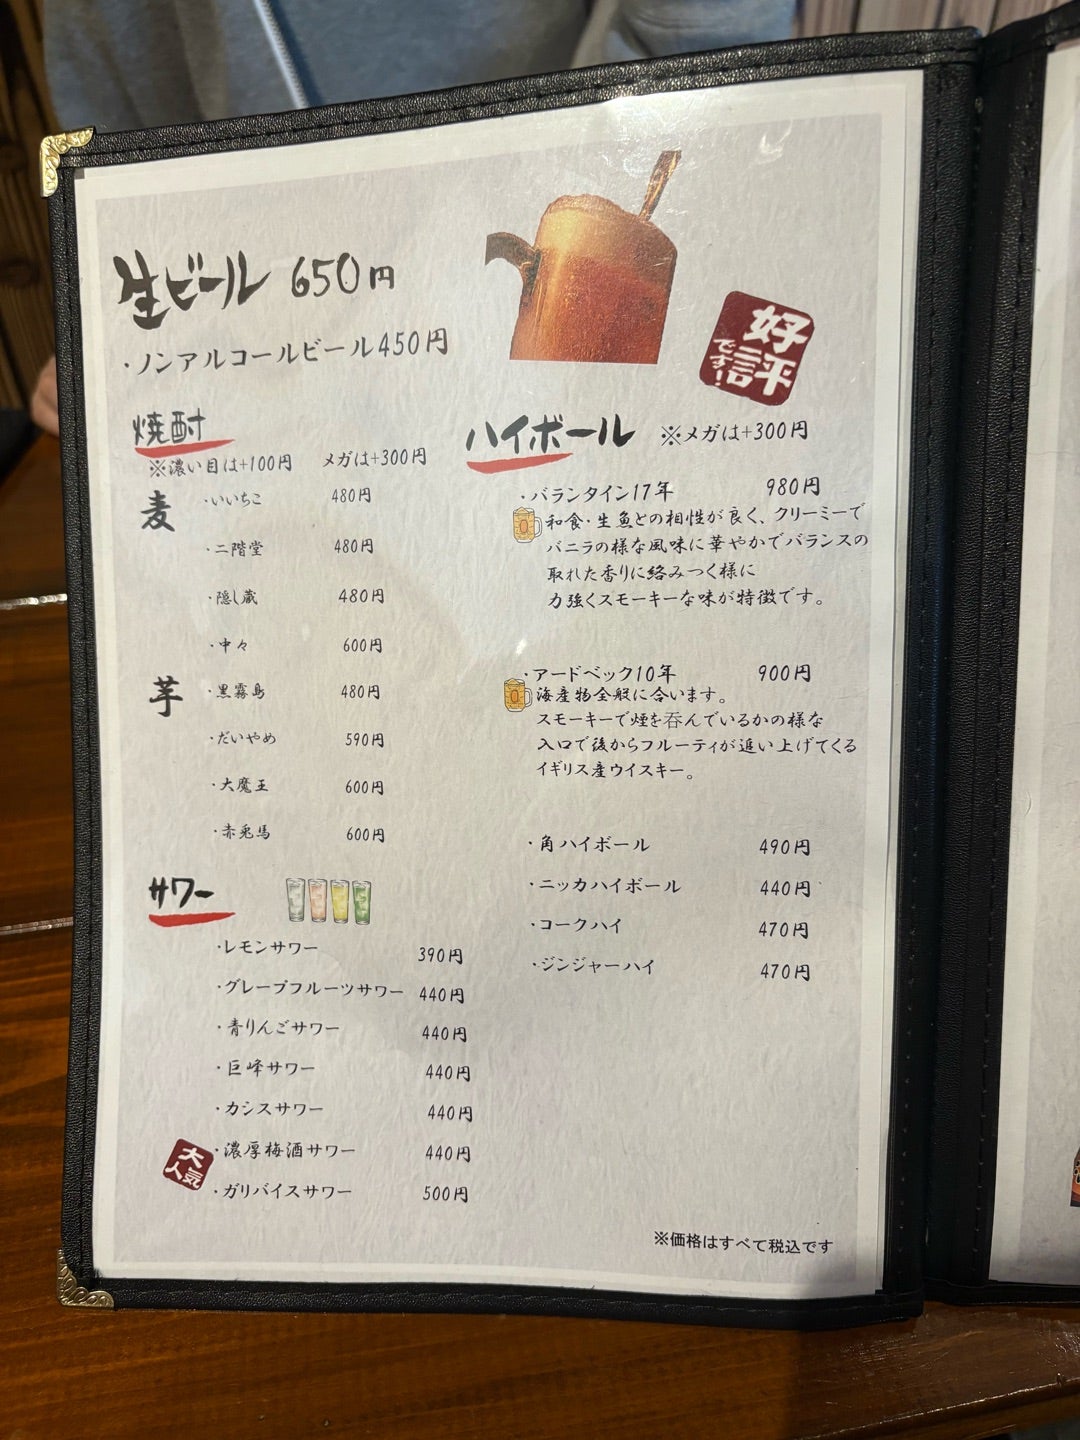 生ビール 650円
・ノンアルコールビール450円
好評です!
焼酎
※濃い目は+100円 メガは+300円
麦
・いいちこ 480円
・二階堂 480円
・隠し蔵 480円
・中々 600円
芋
・黒霧島 480円
・だいやめ 590円
・大魔王 600円
・赤兎馬 600円
サワー
・レモンサワー 390円
・グレープフルーツサワー 440円
・青りんごサワー 440円
・巨峰サワー 440円
・カシスサワー 440円
大人気
・濃厚梅酒サワー 440円
・ガリバイスサワー 500円
ハイボール ※メガは+300円
・バランタイン17年 980円
和食・生魚との相性が良く、クリーミーで
バニラの様な風味に華やかでバランスの
取れた香りに絡みつく様に
力強くスモーキーな味が特徴です。
・アードベック10年 900円
海産物全般に合います。
スモーキーで煙を呑んでいるかの様な
入口で後からフルーティが追い上げてくる
イギリス産ウイスキー。
・角ハイボール 490円
・ニッカハイボール 440円
・コークハイ 470円
・ジンジャーハイ 470円
※価格はすべて税込です